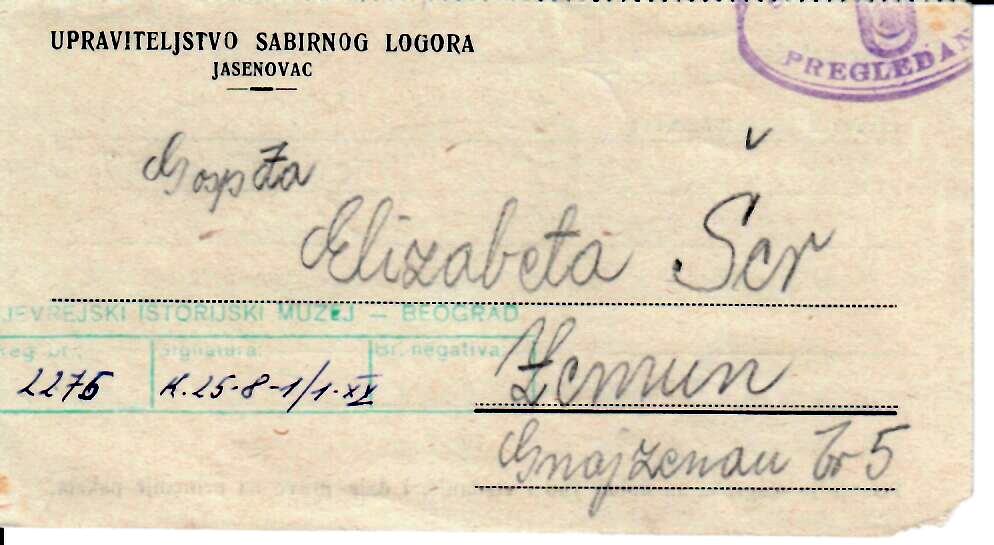 UPRAVITELJSTVO SABIRNOG LOGORA
JASENOVAC
PREGLEDAN
Gospđa
Elizabeta Šer
JEVREJSKI ISTORIJSKI MUZEJ — BEOGRAD
Reg. br.: Signatura: Br. negativa:
2275 K.25-8-1/1-XX
Zemun
Gnajzenau br 5